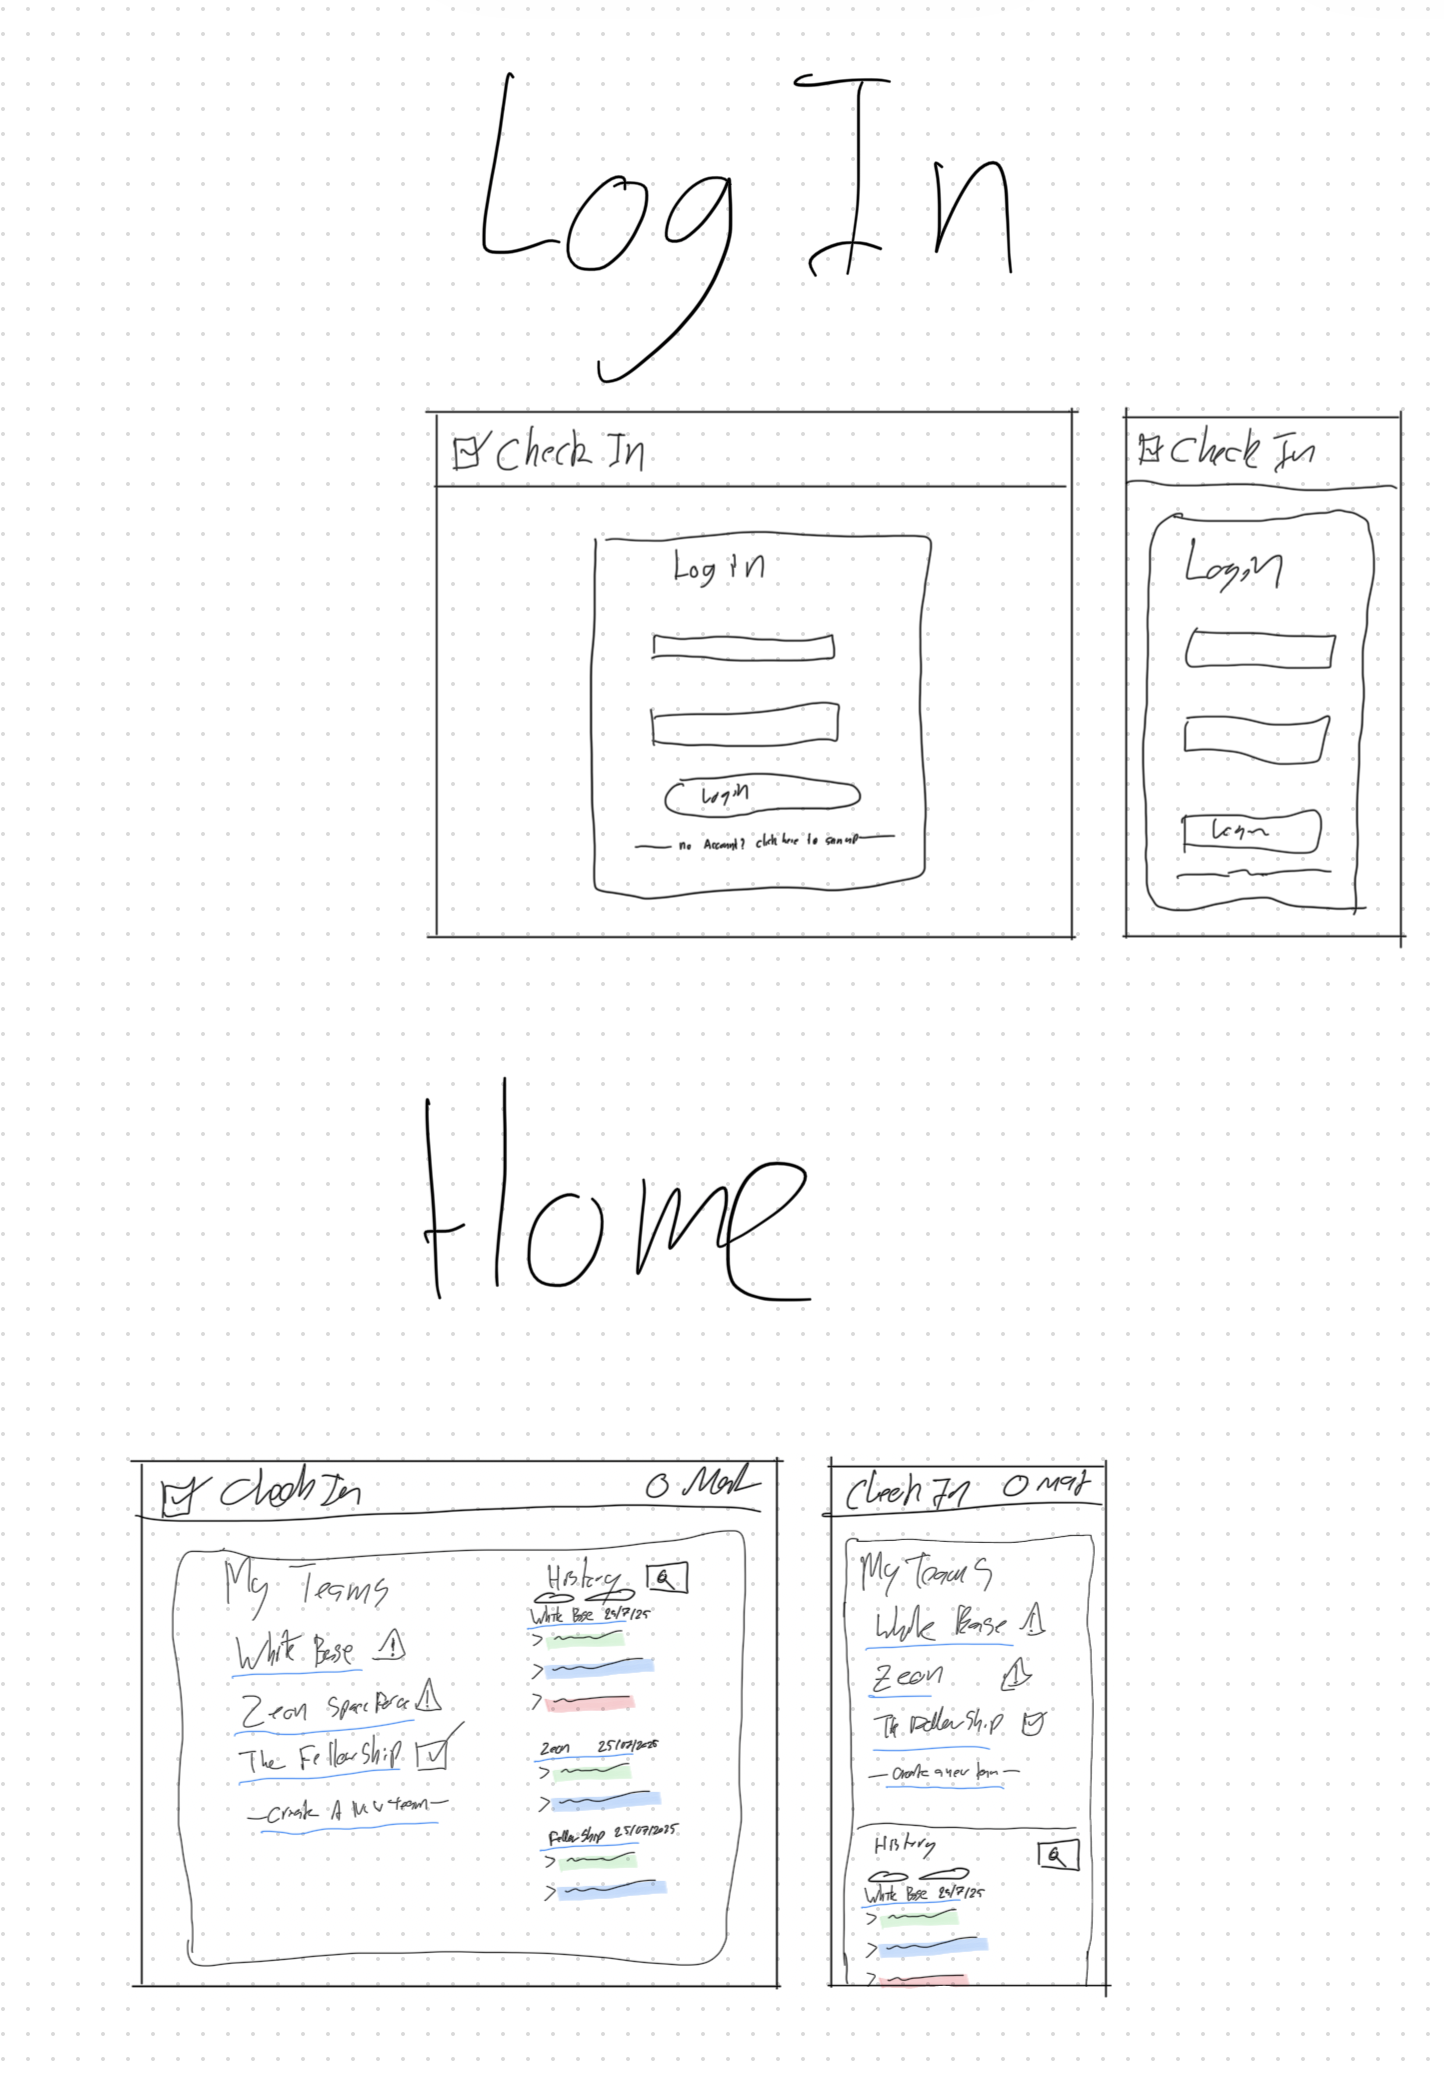 Log In
Check In
Log in
Login
no Account? click here to sign up
Check In
Login
Login
Home
Check In
My Teams
White Base
Zeon Space Force
The Fellowship
Create A New team
History
White Base 25/7/25
Zeon 25/07/2025
Fellowship 25/07/2025
Check In
My Teams
White Base
Zeon
The Fellowship
Create a new team
History
White Base 25/7/25